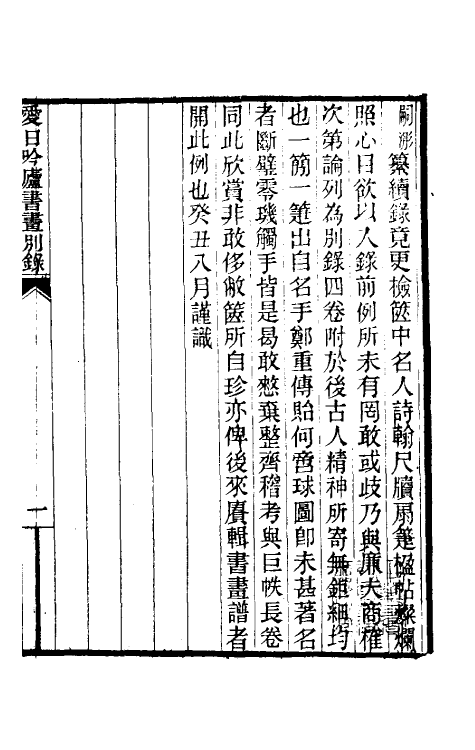 嗣浵纂續錄竟更檢篋中名人詩翰尺牘扇箑楹帖燦爛
照心目欲以人錄前例所未有罔敢或歧乃與廉夫商榷
次第論列為別錄四卷附於後古人精神所寄無鉅細均
也一箌一箑出自名手鄭重傳貽何啻球圖卽未甚著名
者斷璧零璣觸手皆是曷敢憗棄整齊稽考與巨帙長卷
同此欣賞非敢侈敝篋所自珍亦俾後來賡輯書畫譜者
開此例也癸丑八月謹識
愛日吟廬書畫別錄
一